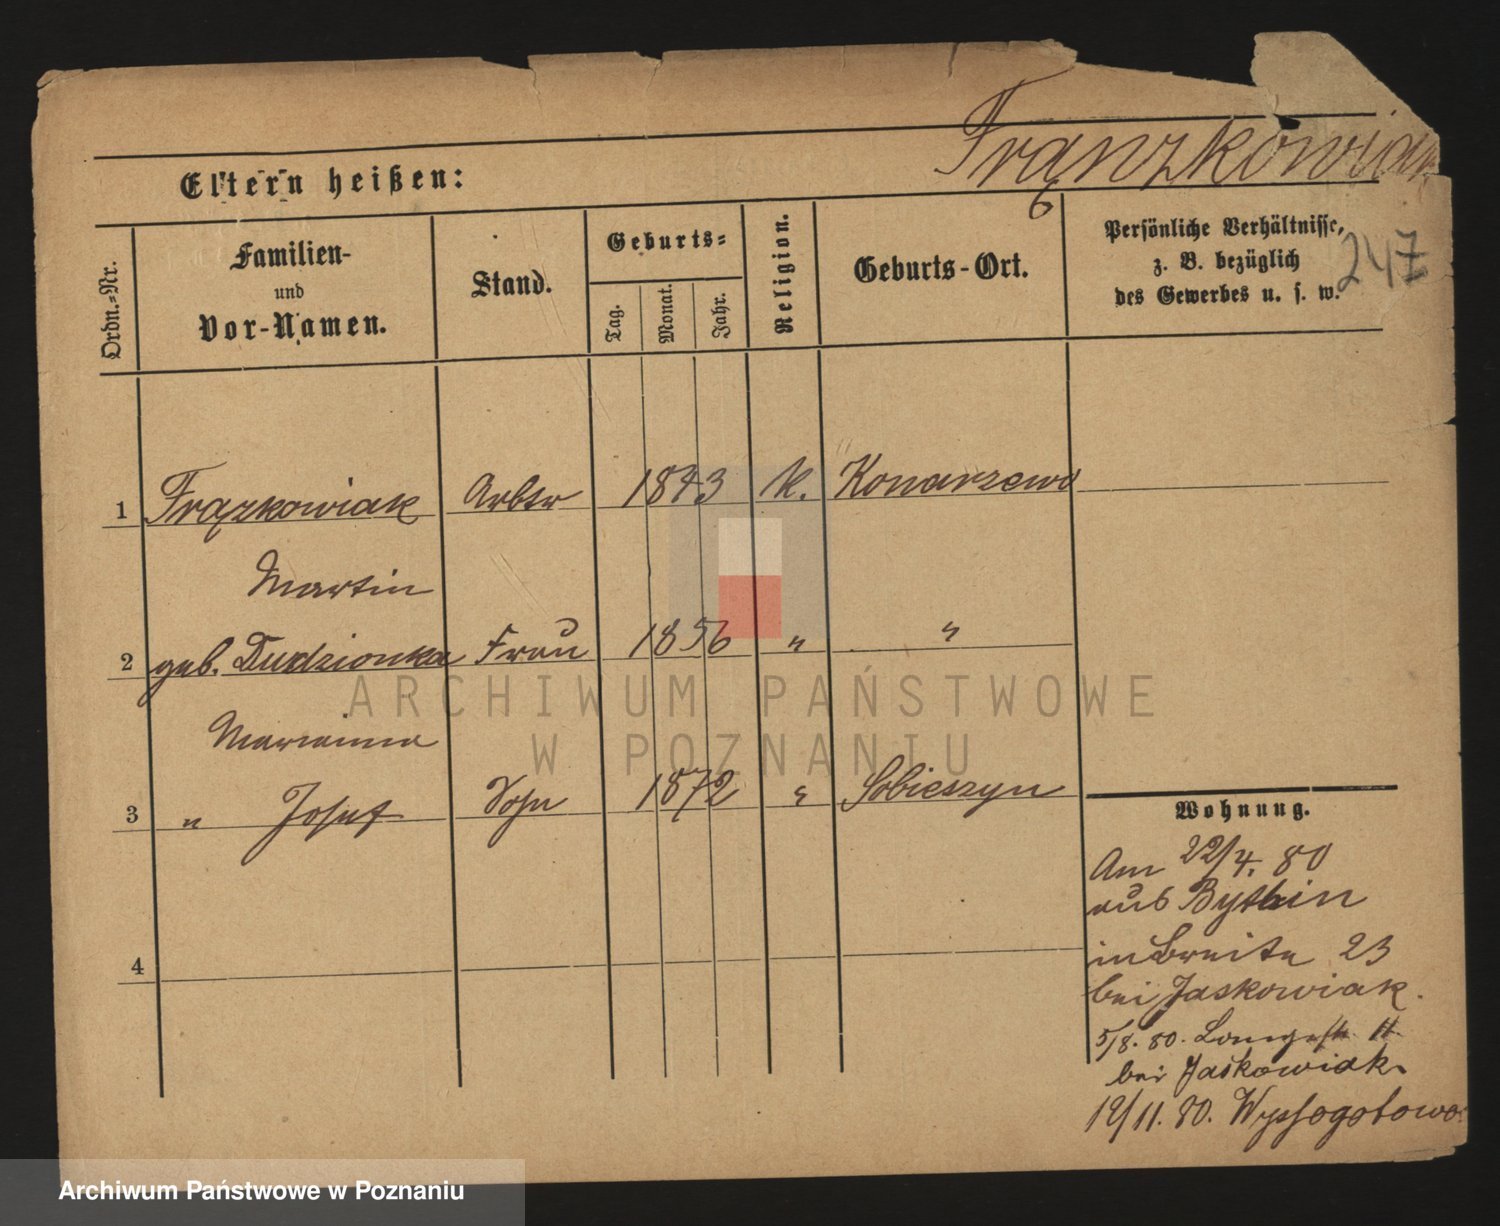 Frąnzkowiak
Eltern heißen:
6
247
Ordn.-Nr.
Familien-
und
Vor-Namen.
Stand.
Geburts-
Tag.
Monat.
Jahr.
Religion.
Geburts-Ort.
Persönliche Verhältnisse,
z. B. bezüglich
des Gewerbes u. s. w.
1 Frązkowiak Arbtr 1843 k. Konarzewo
Martin
2 geb. Dudzionka Frau 1856 " "
Marianna
3 " Josef Sohn 1872 " Sobieszyn
4
Wohnung.
Am 22/4. 80
aus Bythin
in Breite 23
bei Jaskowiak.
5/8. 80. Langestr. 11
bei Jaskowiak.
12/11. 80. Wyssogotowo
ARCHIWUM PAŃSTWOWE
W POZNANIU
Archiwum Państwowe w Poznaniu